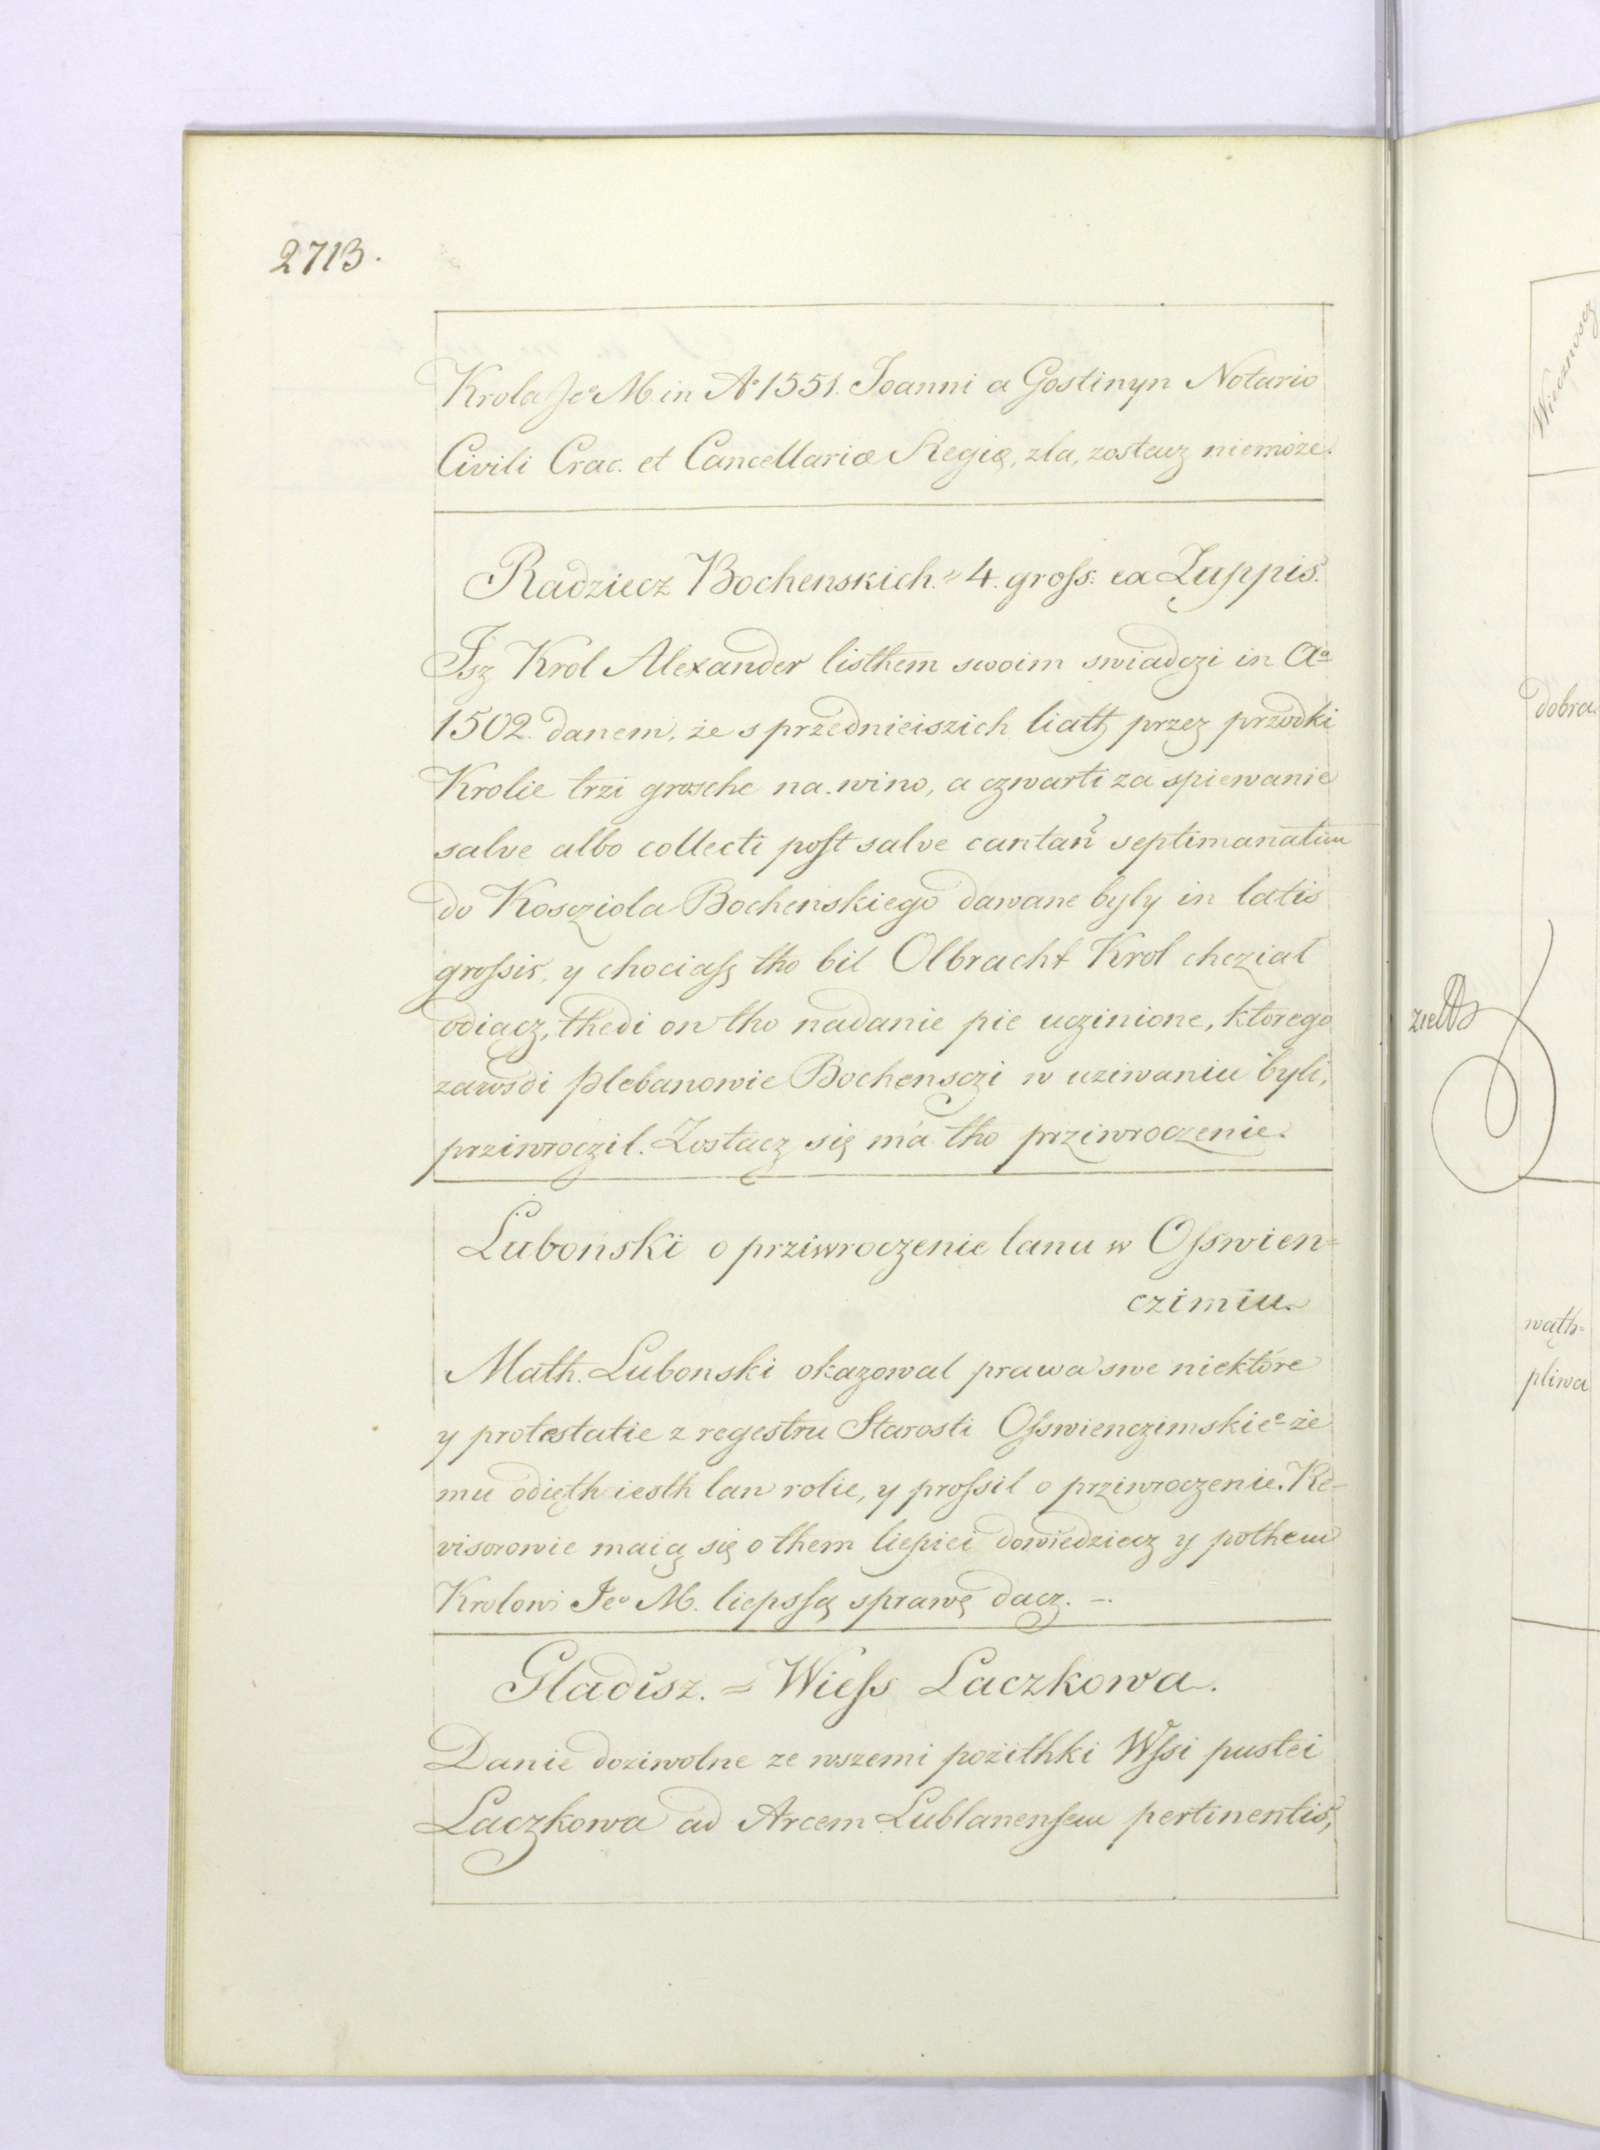 2713.
Krola Jeo M. in Ao 1551. Joanni a Gostinyn Notario
Civili Crac. et Cancellariæ Regię, zla, zostacz niemoże.
Radziecz Bochenskich. = 4. gross. ex Zuppis.
Isz Krol Alexander listhem swoim swiadczi in Ao
1502. danem, że s przednieiszich liath przez przodki
Krolie trzi grosche na wino, a czwarti za spiewanie
salve albo collecti post salve cantan septimanatim
do Koscziola Bochenskiego dawane były in latis
grossis, y chociasz tho bil Olbracht Krol chczial
odiącz, thedi on tho nadanie pie uczinione, ktorego
zawsdi plebanowie Bochensczi w uziwaniu byli,
prziwroczil. Zostacz się ma tho prziwroczenie.
Lubonski o prziwroczenie lanu w Osswien=
czimiu.
Math. Lubonski okazowal prawa swe niektóre
y protestatie z regestru Starosti Osswienczimskieo że
mu odięth iesth lan rolie, y prossil o prziwroczenie. Re-
visorowie maią się o them liepiei dowiedziecz y pothem
Krolowi Jeo M. liepssą sprawę dacz. –.
Gladisz. = Wiess Laczkowa.
Danie doziwolne ze wszemi pożithki Wssi pustei
Laczkowa ad Arcem Lublanensem pertinentis,
Wiecznoscz
dobra.
zielth
wąth=
pliwa